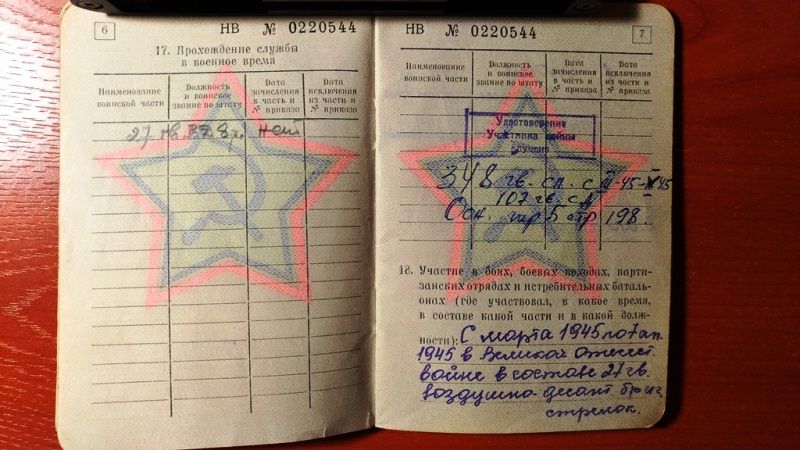 6
НВ № 0220544
17. Прохождение службы
в военное время
Наименование
воинской части
Должность
и воинское
звание по штату
Дата
зачисления
в часть и
№ приказа
Дата
исключения
из части и
№ приказа
27 гв.
НВ № 0220544
7
Наименование
воинской части
Должность
и воинское
звание по штату
Дата
зачисления
в часть и
№ приказа
Дата
исключения
из части и
№ приказа
Удостоверение
Участника войны
348 гв. сп. с III-45-
107 гв. сд
Осн. 5 стр 198.
18. Участие в боях, боевых походах, парти-
занских отрядах и истребительных баталь-
онах (где участвовал, в какое время,
в составе какой части и в какой долж-
ности): С марта 1945 по 7 ап.
1945 в Великой Отечест.
войне в составе 27 гв.
воздушно-десант. бриг.
стрелок.